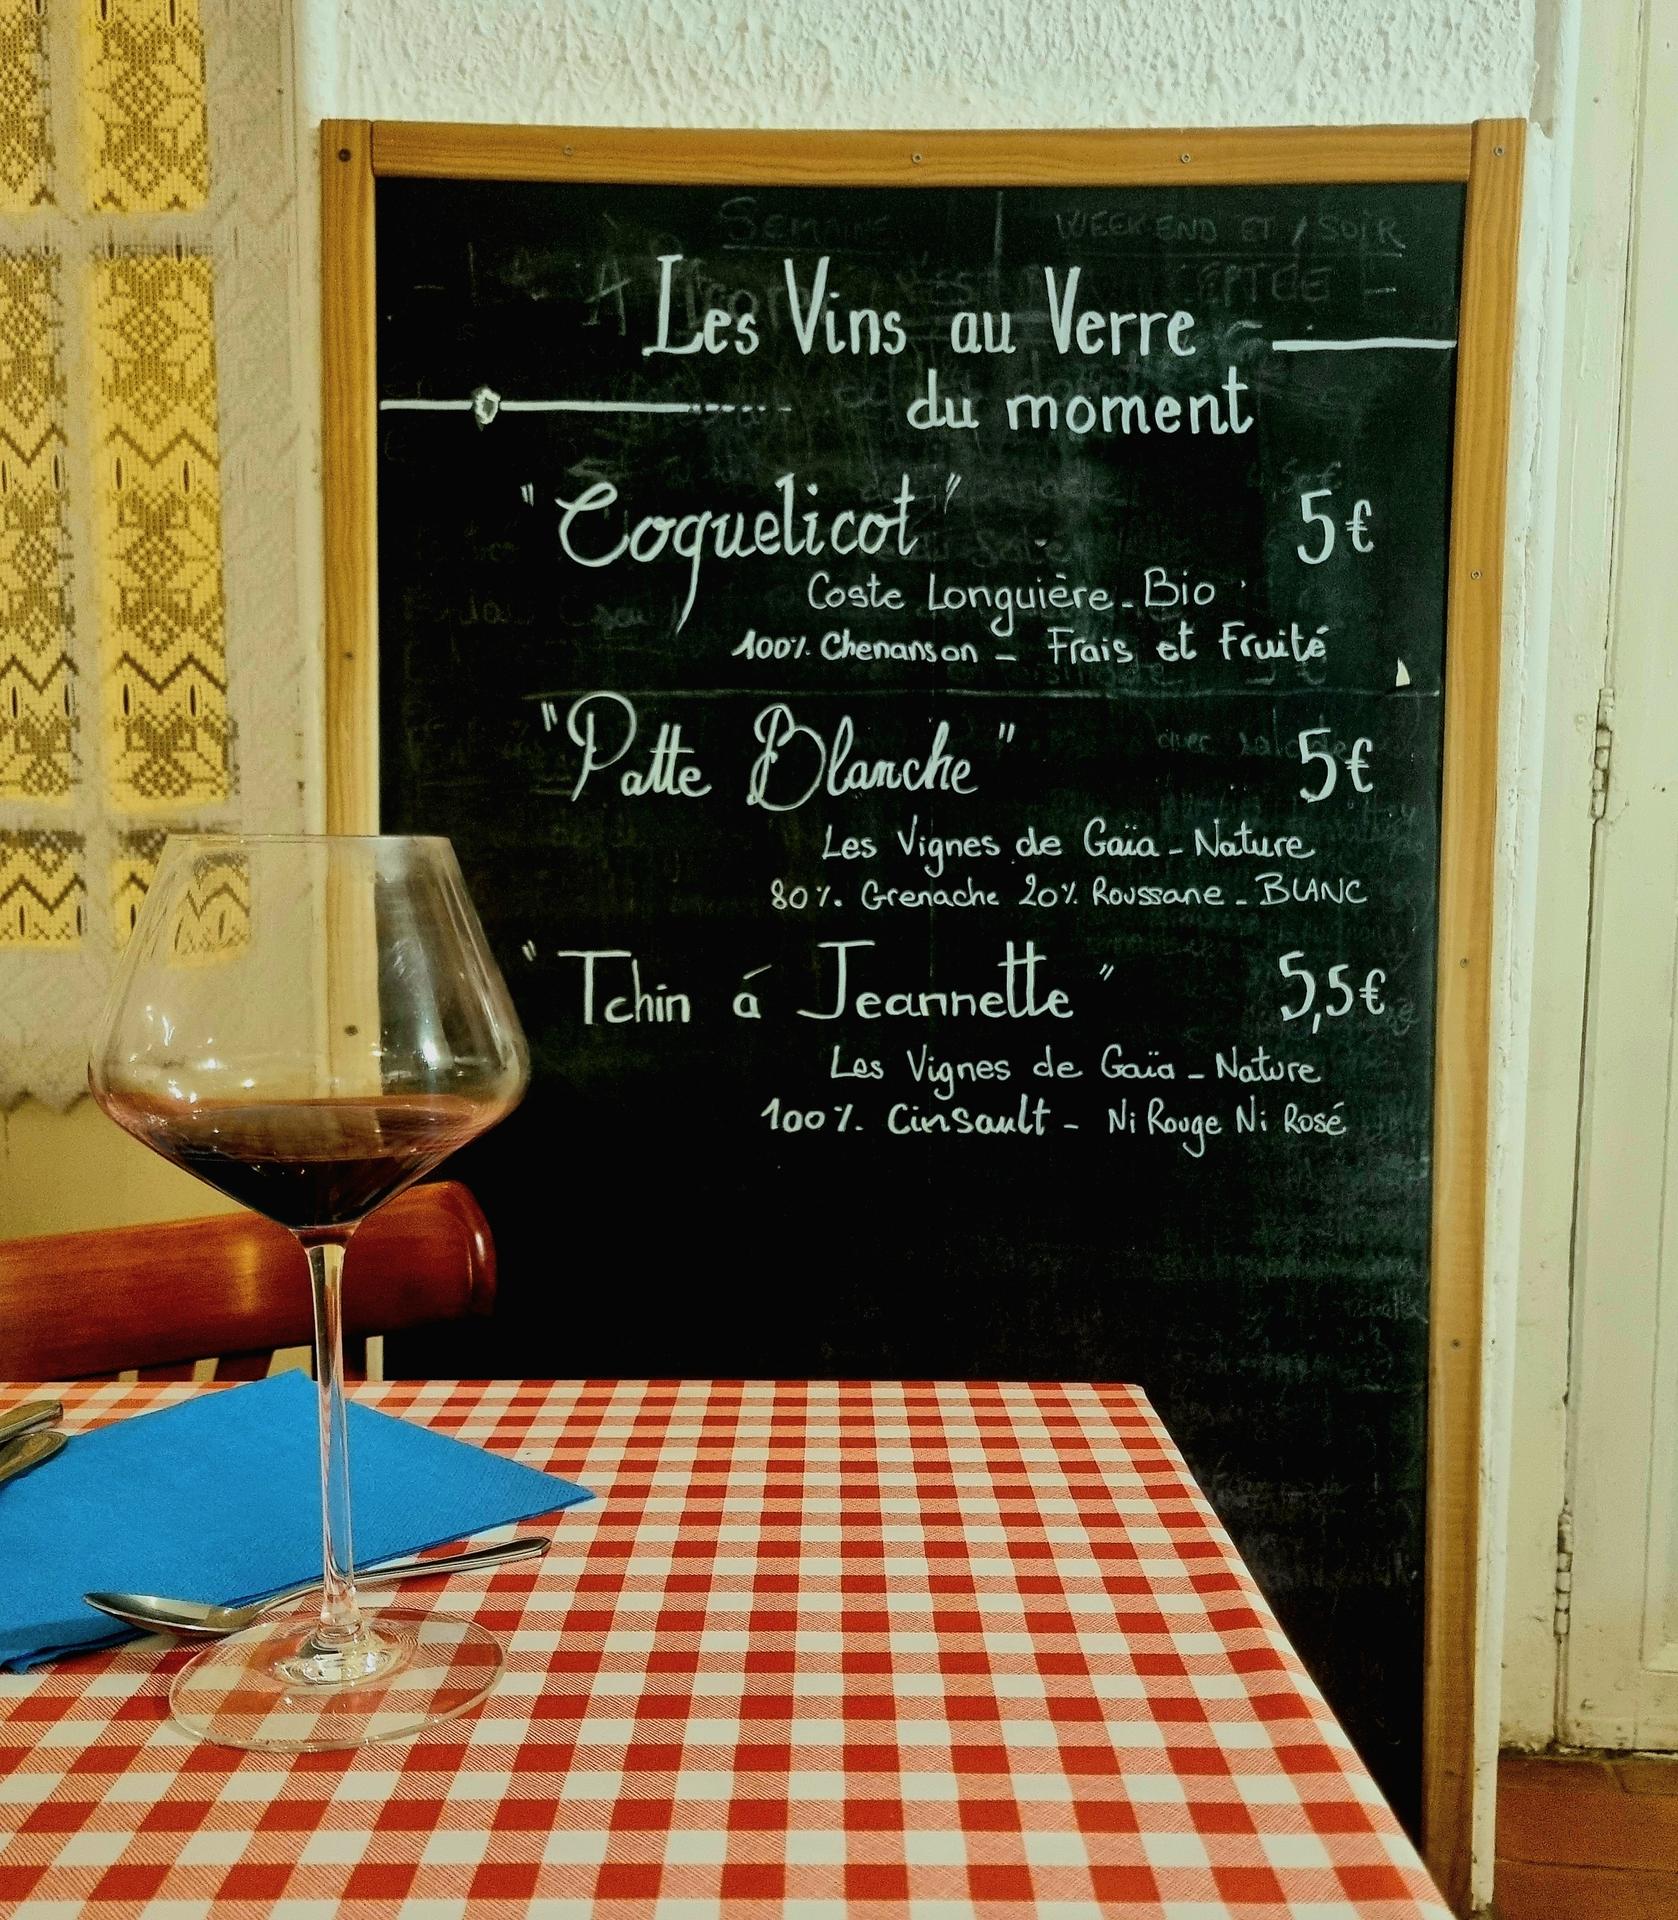 SEMAINE
WEEK-END ET / SOIR
Les Vins au Verre
du moment
"Coquelicot" 5€
Coste Longuière - Bio
100% Chenanson - Frais et Fruité
"Patte Blanche" 5€
Les Vignes de Gaïa - Nature
80% Grenache 20% Roussane - BLANC
"Tchin á Jeannette" 5,5€
Les Vignes de Gaïa - Nature
100% Cinsault - Ni Rouge Ni Rosé